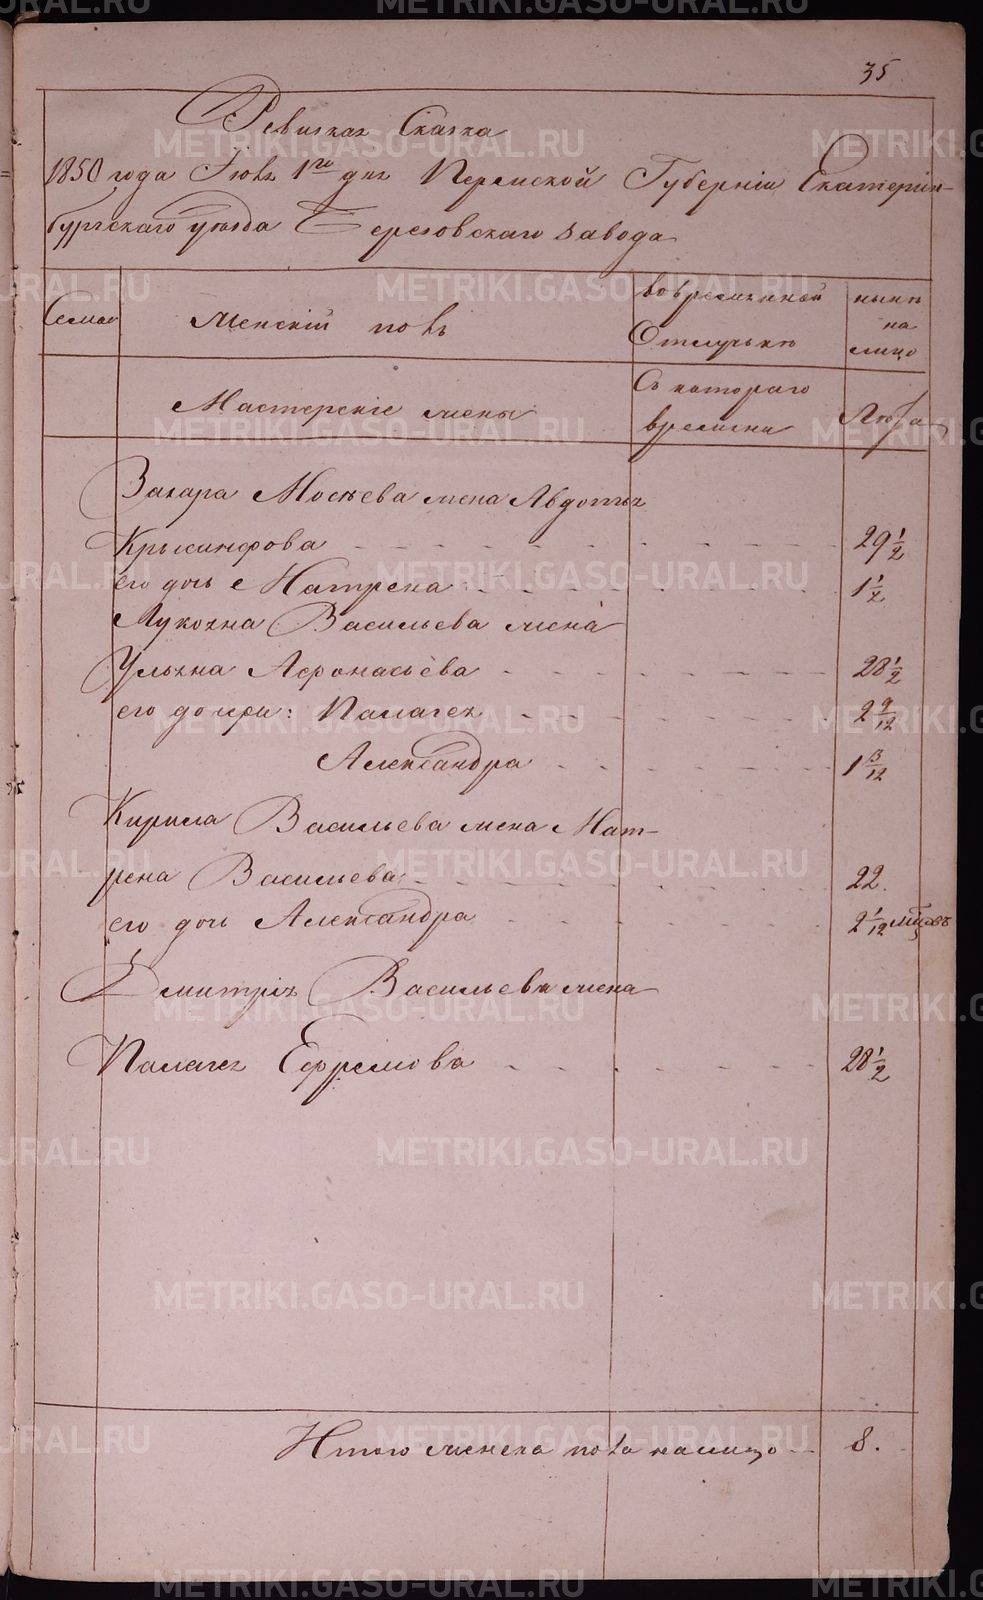 35
Ревизская Сказка
1850 года Июля 1го дня Пермской Губерніи Екатерин-
бургскаго уезда Березовскаго завода
Семьи
Женскій полъ
во временной
Отлучькѣ
нынѣ
на
лицо
Мастерскіе жены
Съ котораго
времени
Лѣта
Захара Мосѣева жена Авдотья
Крысанфова 29 1/2
его дочь Матрена 1 1/2
Лукояна Васильева жена
Ульяна Афонасьева 28 1/2
его дочери: Палагея 2 9/12
Александра 1 /12
Кирила Васильева жена Мат-
рена Васильева 22.
его дочь Александра 2 1/12 мѣсяцовъ
Дмитрія Васильева жена
Палагея Ефремова 28 1/2
Итого женска пола налицо 8.
METRIKI.GASO-URAL.RU